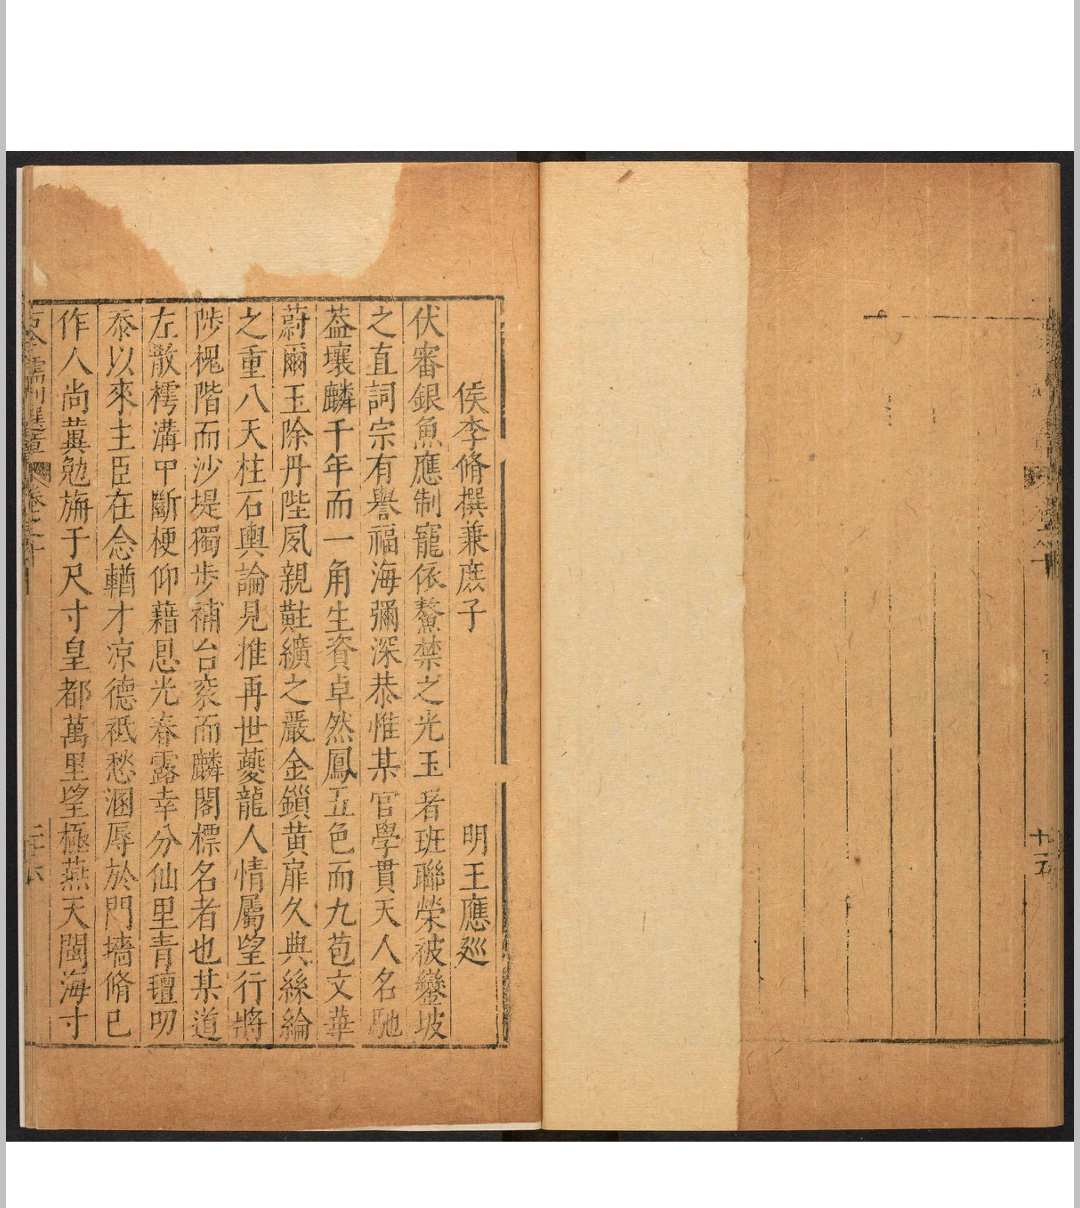 十五
侯李脩撰兼庶子 明王應廵
伏審銀魚應制寵依鰲禁之光玉荀班聯榮被鑾坡
之直詞宗有譽福海彌深恭惟某官學貫天人名馳
葢壤麟千年而一角生資卓然鳳五色而九苞文華
蔚爾玉除丹陛夙親黈纊之嚴金鎖黄扉久典絲綸
之重八天柱石輿論見推再世夔龍人情屬望行將
陟槐階而沙堤獨步補台衮而麟閣標名者也某道
左散樗溝中斷梗仰藉恩光春露幸分仙里青氊叨
忝以來主臣在念輶才凉德祗愁溷辱於門墻脩已
作人尚冀勉旃于尺寸皇都萬里望極燕天閩海寸